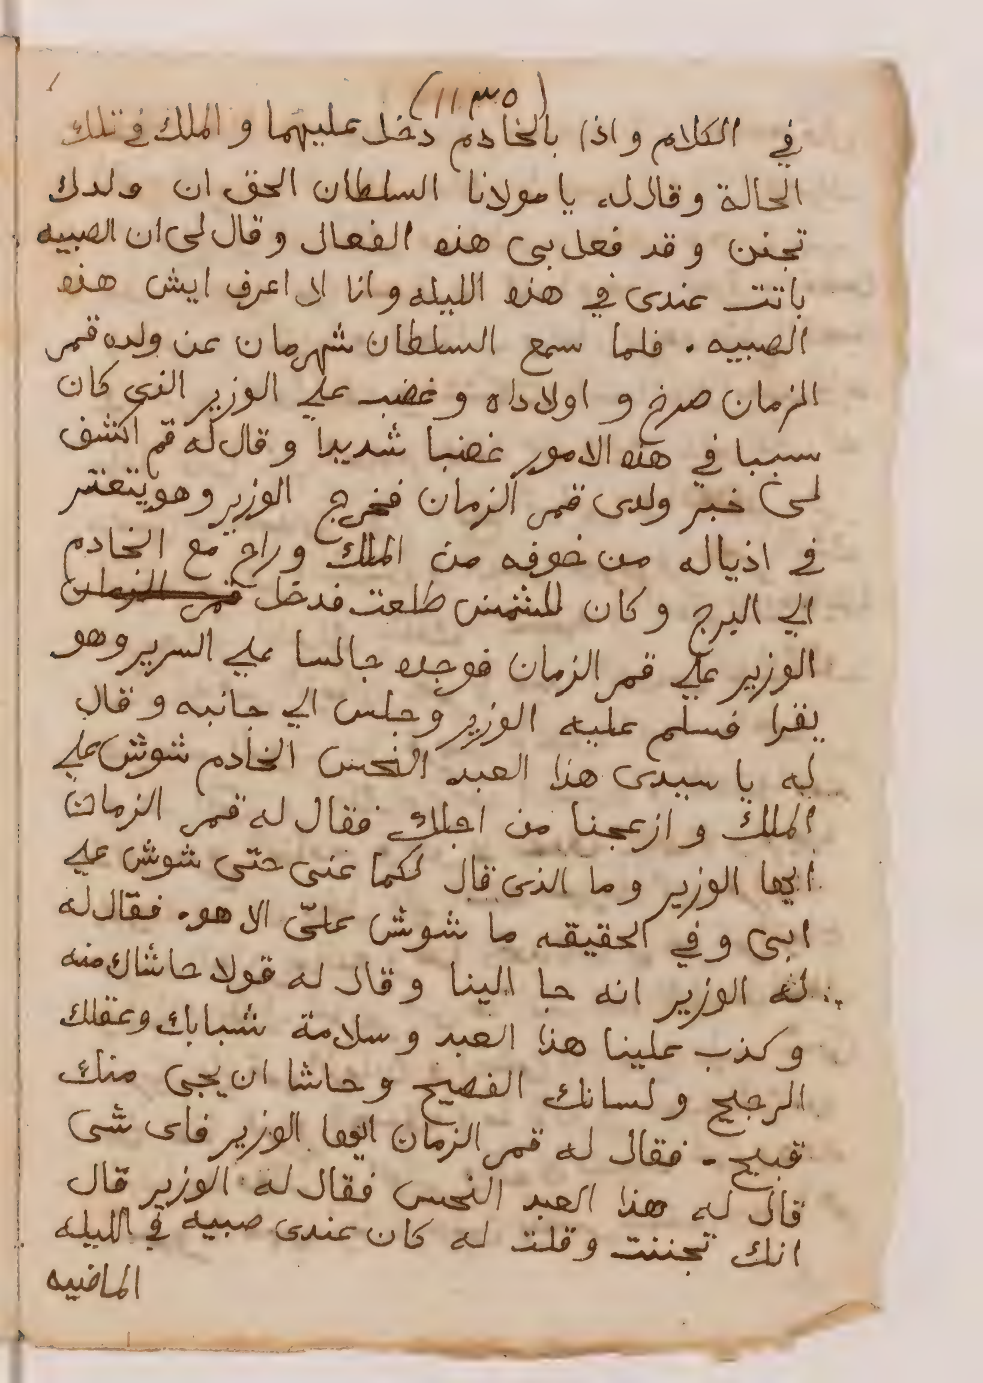 (١١٣٥)
في الكلام و اذا بالخادم دخل عليهما و الملك في تلك
الحالة و قال له يا مولانا السلطان الحق ان ولدك
تجنن و قد فعل بي هذه الفعال و قال لي ان الصبيه
باتت عندي في هذه الليله و انا لا اعرف ايش هذه
الصبيه . فلما سمع السلطان شهرمان عن ولده قمر
الزمان صرخ و اولاداه و غضب علي الوزير الذي كان
سببا في هذه الامور غضبا شديدا و قال له قم اكشف
لي خبر ولدي قمر الزمان فخرج الوزير و هو يتعثر
في اذياله من خوفه من الملك و راح مع الخادم
الي البرج و كان الشمس طلعت فدخل قمر الزمان
الوزير علي قمر الزمان فوجده جالسا علي السرير وهو
يقرا فسلم عليه الوزير و جلس الي جانبه و قال
له يا سيدي هذا العبد النحس الخادم شوش علي
الملك و ازعجنا من اجلك فقال له قمر الزمان
ايها الوزير و ما الذي قال لكما عني حتى شوش علي
ابي و في الحقيقه ما شوش عليّ الا هو. فقال له
له الوزير انه جا الينا و قال له قولا حاشاك منه
و كذب علينا هذا العبد و سلامة شبابك و عقلك
الرجيح و لسانك الفصيح و حاشا ان يجي منك
قبيح . فقال له قمر الزمان ايها الوزير فاي شي
قال له هذا العبد النحس فقال له الوزير قال
انك تجننت و قلت له كان عندي صبيه في الليله
الماضيه